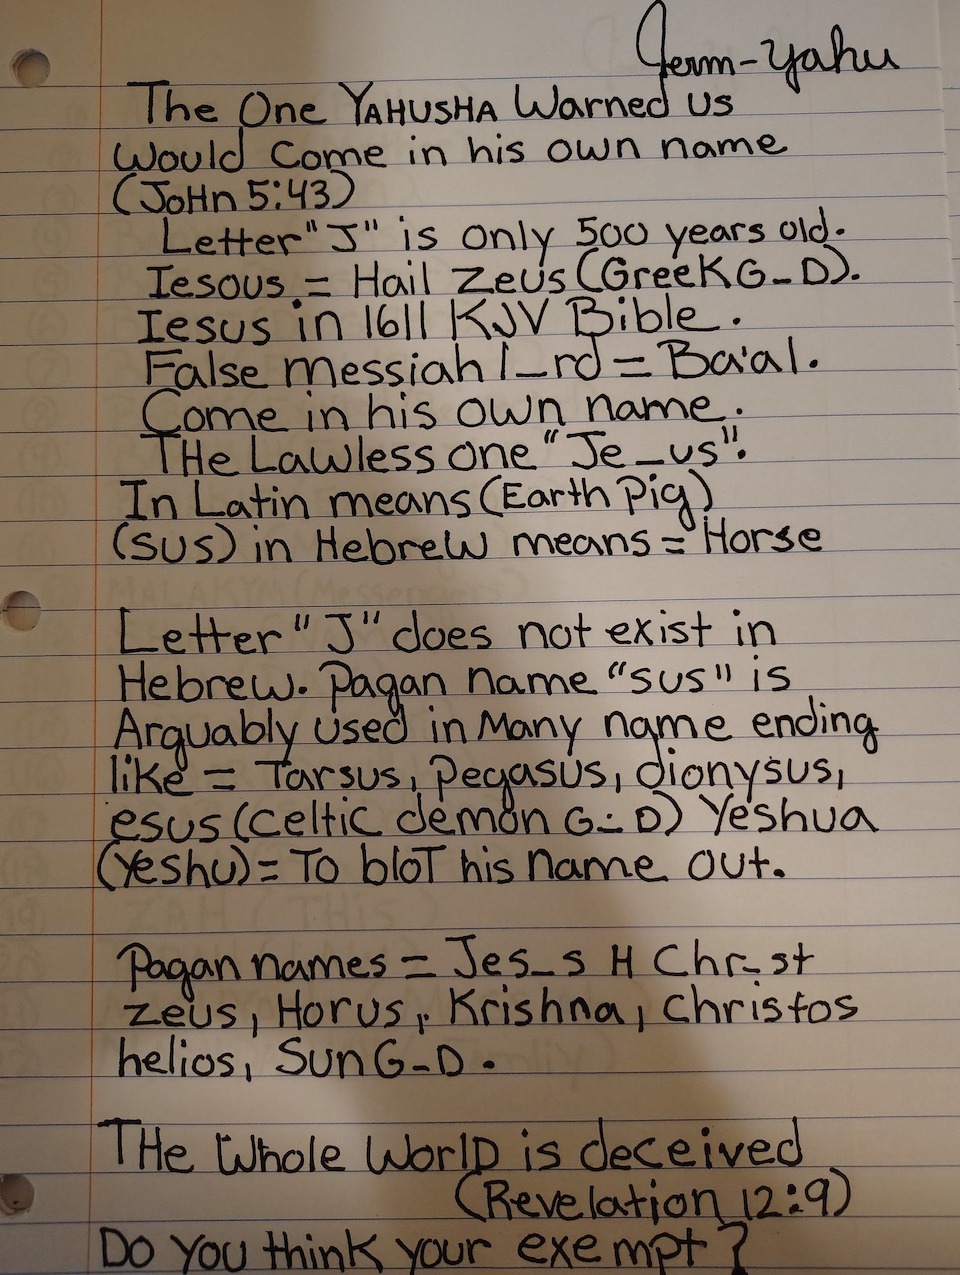 Jerm-Yahu
The One YAHUSHA Warned us
Would Come in his own name
(JoHn 5:43)
Letter "J" is only 500 years old.
Iesous = Hail Zeus (Greek G_D).
Iesus in 1611 KJV Bible.
False messiah l_rd = Ba'al.
Come in his own name.
THe Lawless one "Je_us".
In Latin means (Earth Pig)
(sus) in Hebrew means = Horse
Letter "J" does not exist in
Hebrew. Pagan name "sus" is
Arguably used in Many name ending
like = Tarsus, Pegasus, dionysus,
esus (celtic demon G_D) Yeshua
(Yeshu) = To bloT his name out.
Pagan names = Jes_s H Chr_st
zeus, Horus, Krishna, christos
helios, Sun G_D.
THe Whole World is deceived
(Revelation 12:9)
Do You think your exempt?